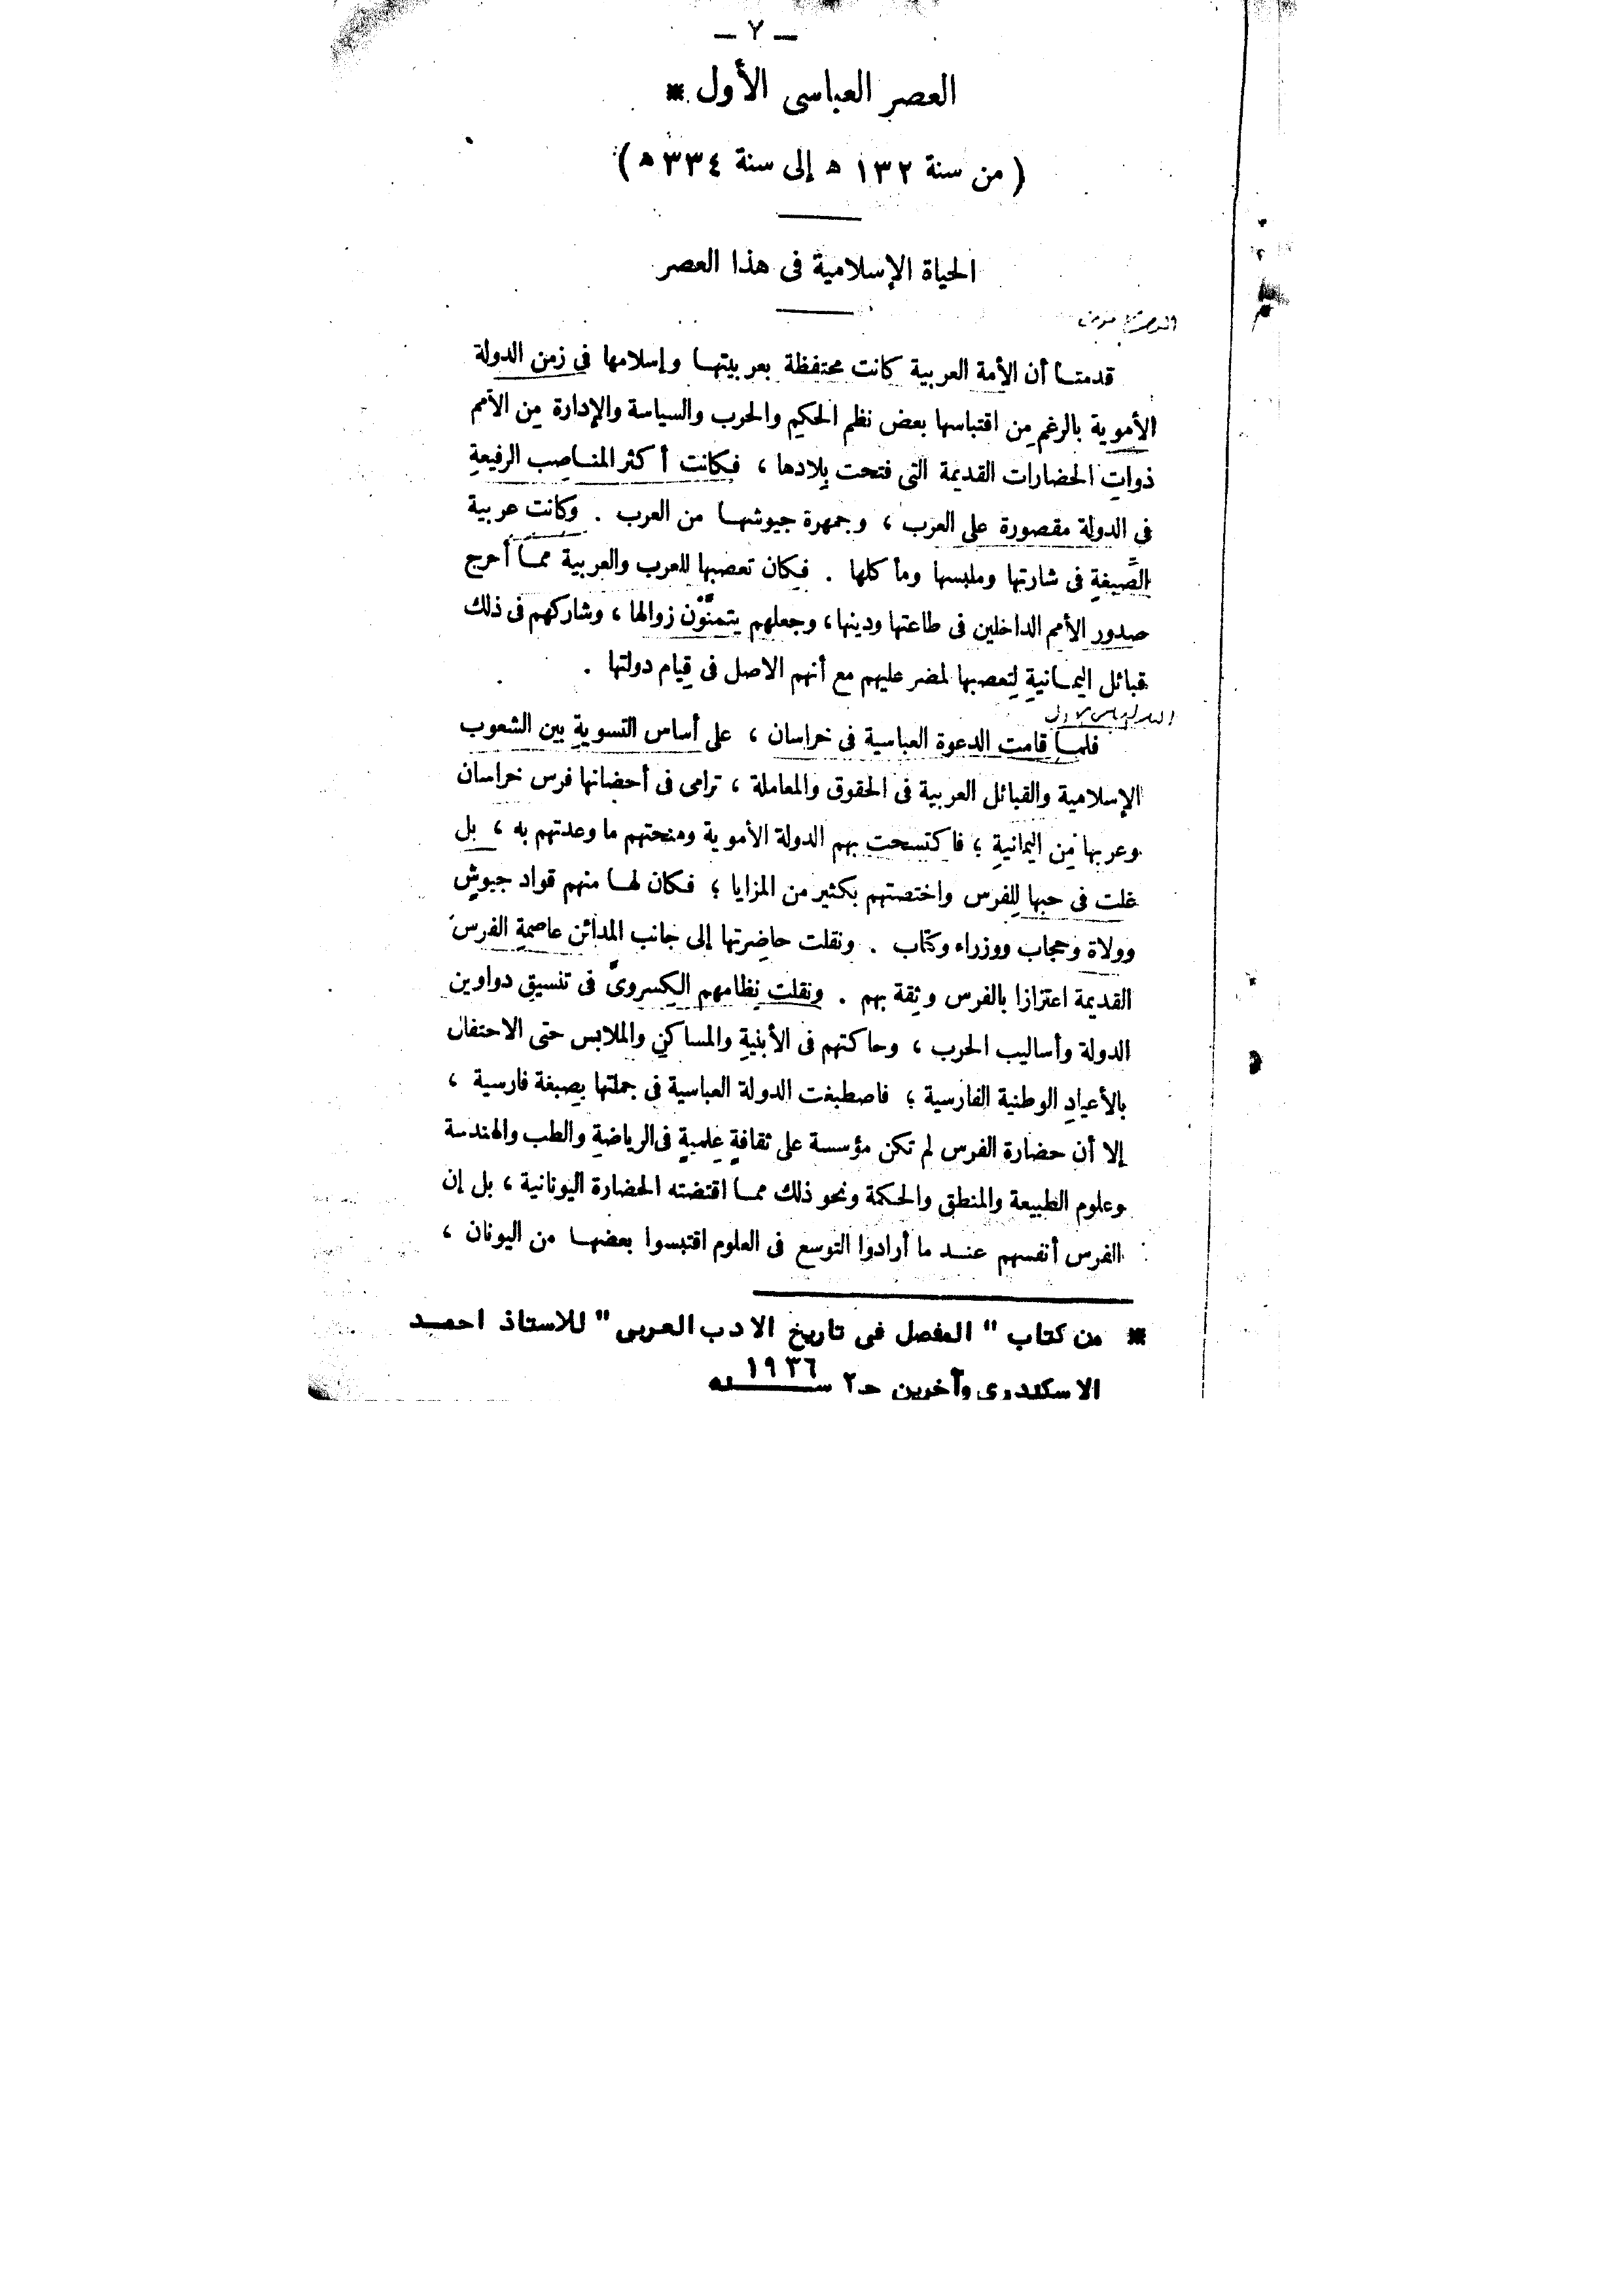 — ٧ —
العصر العباسى الأول *
( من سنة ١٣٢ ھ إلى سنة ٣٣٤ ھ )
الحياة الإسلامية فى هذا العصر
قدمنا أن الأمة العربية كانت محتفظة بعربيتها وإسلامها فى زمن الدولة
الأموية بالرغم من اقتباسها بعض نظم الحكم والحرب والسياسة والإدارة مِن الأمم
ذواتِ الحضارات القديمة التى فتحت بِلادها ، فكانت أكثر المناصِب الرفيعةِ
فى الدولة مقصورة على العرب ، وجمهرة جيوشها من العرب . وكانت عربية
الصِّبغةِ فى شارتها وملبسها ومأكلها . فكان تعصبها للعرب والعربية مما أحرج
صدور الأمم الداخلين فى طاعتها ودينها ، وجعلهم يتمنَّوْن زوالها ، وشاركهم فى ذلك
قبائل اليمانيةِ لِتعصبها لمضر عليهم مع أنهم الاصل فى قِيام دولتها .
فلما قامت الدعوة العباسية فى خراسان ، على أساس التسويةِ بين الشعوب
الإسلامية والقبائل العربية فى الحقوق والمعاملة ، ترامى فى أحضانها فرس خراسان
وعربها مِن اليمانيةِ ؛ فاكتسحت بهم الدولة الأموية ومنحتهم ما وعدتهم به ، بل
غلت فى حبها لِلفرس واختصتهم بكثير من المزايا ؛ فكان لها منهم قواد جيوشٍ
وولاة وحجاب ووزراء وكتاب . ونقلت حاضِرتها إلى جانب المدائن عاصمةِ الفرس
القديمة اعتزازا بالفرس وثِقة بهم . ونقلت نِظامهم الكِسروىَّ فى تنسيق دواوين
الدولة وأساليب الحرب ، وحاكتهم فى الأبنيةِ والمساكنِ والملابس حتى الاحتفال
بالأعيادِ الوطنية الفارسية ؛ فاصطبغت الدولة العباسية فى جملتها بِصِبغة فارسية ،
إلا أن حضارة الفرس لم تكن مؤسسة على ثقافةٍ عِلميةٍ فى الرياضةِ والطب والهندسة
وعلوم الطبيعة والمنطق والحكمة ونحو ذلك مما اقتضته الحضارة اليونانية ، بل إن
الفرس أنفسهم عند ما أرادوا التوسع فى العلوم اقتبسوا بعضها من اليونان ،
* من كتاب " المفصل فى تاريخ الادب العربى " للاستاذ احمد
الاسكندرى وآخرين حـ٢ سنه ١٩٣٦